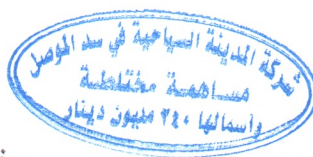 شركة المدينة السياحية في سد الموصل
مساهمة مختلطة
رأسمالها ٢٤٠ مليون دينار